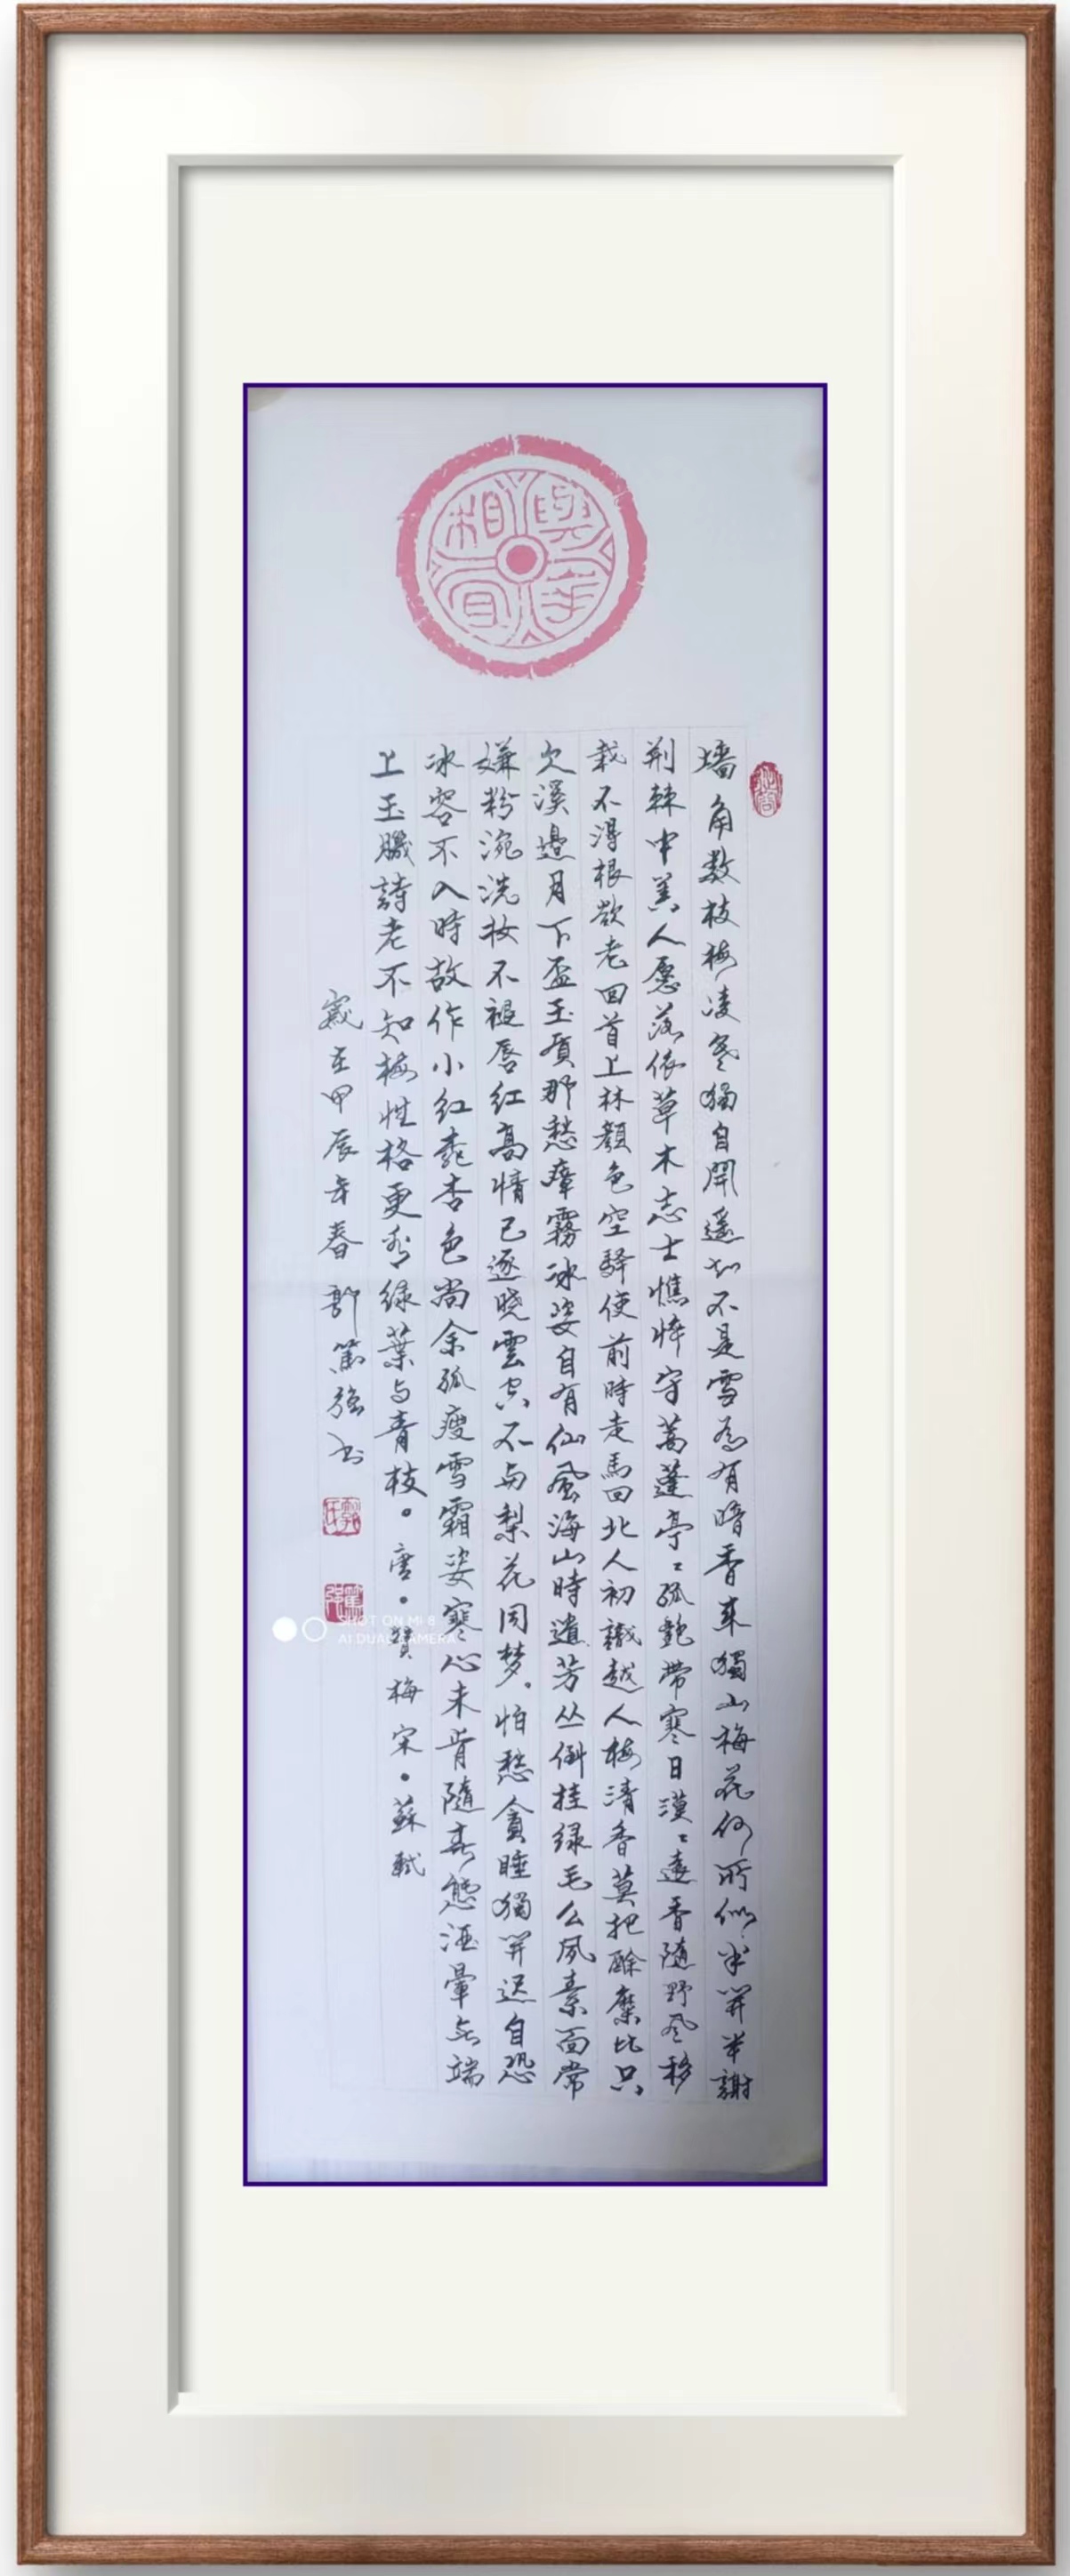 與年
相宜
墙角数枝梅凌寒獨自開遥知不是雪為有暗香来獨山梅花何所似半開半謝
荆棘中美人愿落依草木志士憔悴守蒿蓬亭亭孤艶帶寒日漠漠遠香隨野風移
栽不得根欲老回首上林顏色空驛使前時走馬回北人初識越人梅清香莫把酴糜比只
欠溪邊月下盃玉質那愁瘴霧冰姿自有仙風海山時遣芳丛倒挂绿毛么凤素面常
嫌粉涴洗妆不褪唇红高情已逐晓雲空不与梨花同梦。怕愁貪睡獨開迟自恐
冰容不入時故作小红桃杏色尚余孤瘦雪霜姿寒心未肯隨春態酒暈無端
上玉肌詩老不知梅性格更看绿葉与青枝。唐·贊梅宋·蘇軾
歲在甲辰年春郭篤强书
SHOT ON MI 8
AI DUAL CAMERA